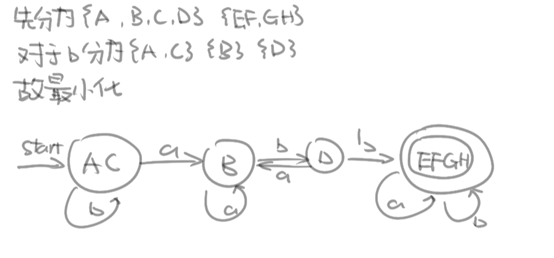 先分为{A,B,C,D} {EF,GH}
对于b分为{A,C} {B} {D}
故最小化
start AC a B b D b EFGH
a
b a a b